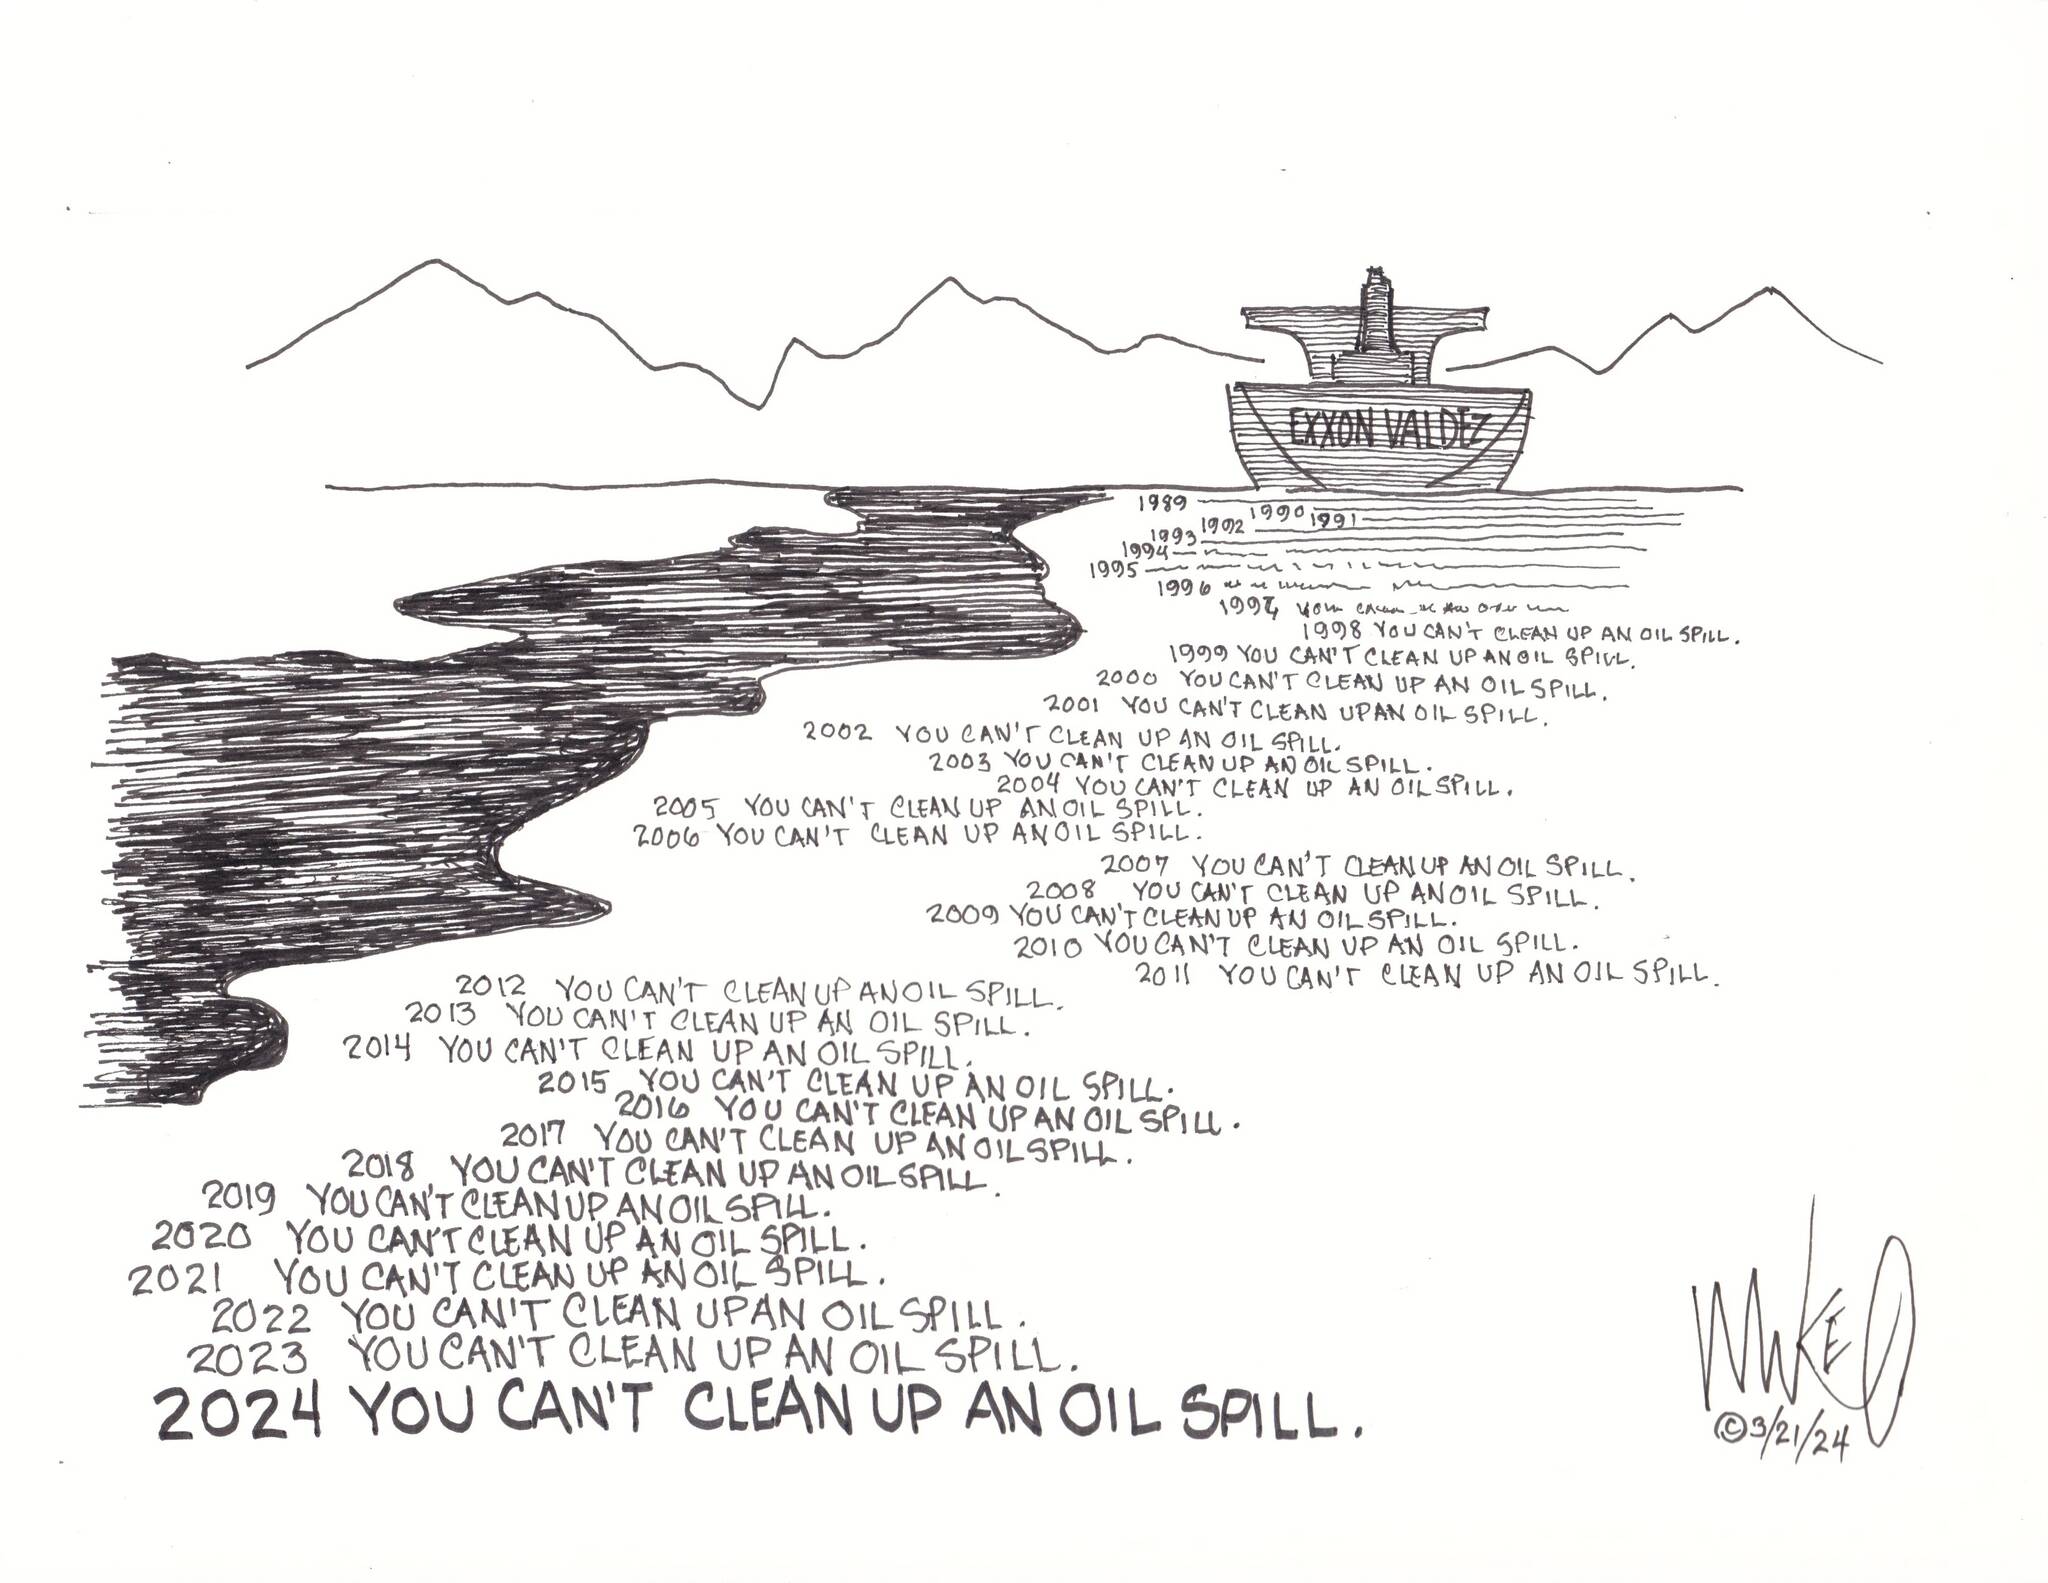 EXXON VALDEZ
1989
1990
1991
1992
1993
1994
1995
1996
1997
1998 YOU CAN'T CLEAN UP AN OIL SPILL.
1999 YOU CAN'T CLEAN UP AN OIL SPILL.
2000 YOU CAN'T CLEAN UP AN OIL SPILL.
2001 YOU CAN'T CLEAN UP AN OIL SPILL.
2002 YOU CAN'T CLEAN UP AN OIL SPILL.
2003 YOU CAN'T CLEAN UP AN OIL SPILL.
2004 YOU CAN'T CLEAN UP AN OIL SPILL.
2005 YOU CAN'T CLEAN UP AN OIL SPILL.
2006 YOU CAN'T CLEAN UP AN OIL SPILL.
2007 YOU CAN'T CLEAN UP AN OIL SPILL.
2008 YOU CAN'T CLEAN UP AN OIL SPILL.
2009 YOU CAN'T CLEAN UP AN OIL SPILL.
2010 YOU CAN'T CLEAN UP AN OIL SPILL.
2011 YOU CAN'T CLEAN UP AN OIL SPILL.
2012 YOU CAN'T CLEAN UP AN OIL SPILL.
2013 YOU CAN'T CLEAN UP AN OIL SPILL.
2014 YOU CAN'T CLEAN UP AN OIL SPILL.
2015 YOU CAN'T CLEAN UP AN OIL SPILL.
2016 YOU CAN'T CLEAN UP AN OIL SPILL.
2017 YOU CAN'T CLEAN UP AN OIL SPILL.
2018 YOU CAN'T CLEAN UP AN OIL SPILL.
2019 YOU CAN'T CLEAN UP AN OIL SPILL.
2020 YOU CAN'T CLEAN UP AN OIL SPILL.
2021 YOU CAN'T CLEAN UP AN OIL SPILL.
2022 YOU CAN'T CLEAN UP AN OIL SPILL.
2023 YOU CAN'T CLEAN UP AN OIL SPILL.
2024 YOU CAN'T CLEAN UP AN OIL SPILL.
MIKE O
©3/21/24